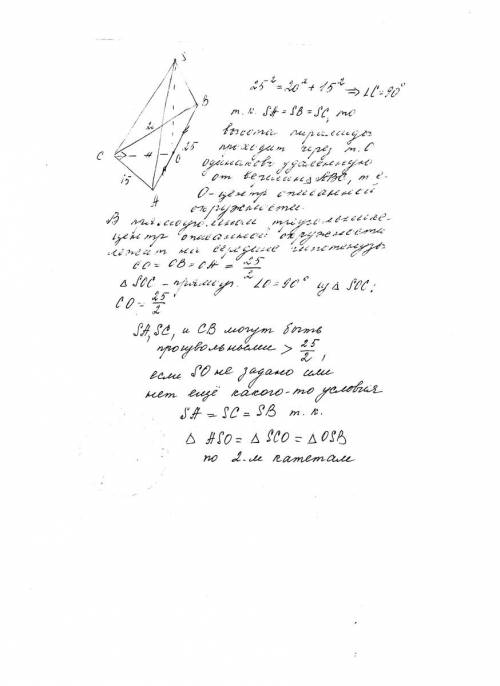 S
B
C
A
O
20
25
15
25² = 20² + 15² ⇒ ∠C = 90°
т.к. SA = SB = SC, то
высота пирамиды
проходит через т. О
одинаково удаленную
от вершин ΔABC, т.е.
О-центр описанной
окружности.
В прямоугольном треугольнике
центр описанной окружности
лежит на середине гипотенузы
CO = OB = OA = 25/2
Δ SOC - прямоуг. ∠O = 90° из Δ SOC:
CO = 25/2
SA, SC, и СВ могут быть
произвольными > 25/2,
если SO не задано или
нет ещё какого-то условия
SA = SC = SB т.к.
Δ ASO = Δ SCO = Δ OSB
по 2-м катетам